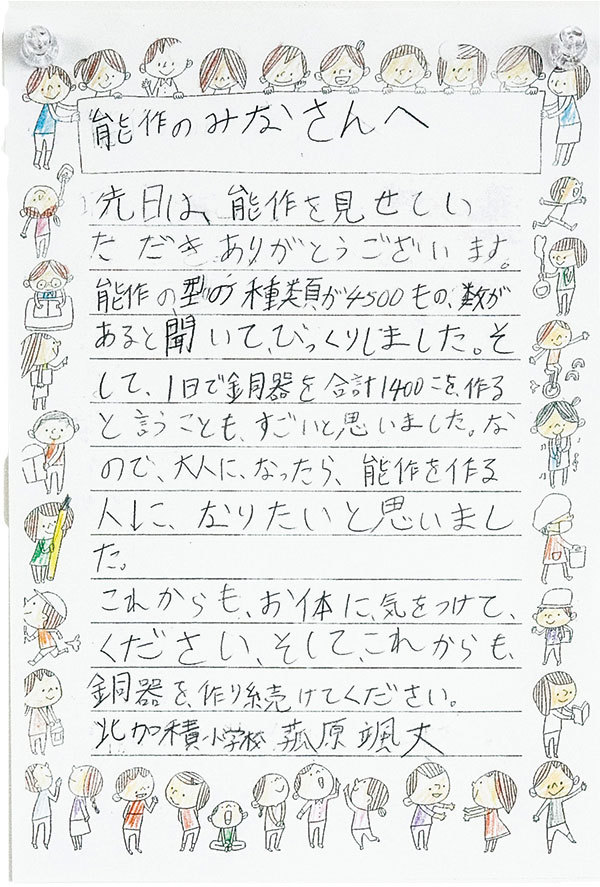 能作のみなさんへ
先日は、能作を見せてい
ただきありがとうございます。
能作の型の種類が4500もの、数が
あると聞いて、びっくりしました。そ
して、1日で銅器を合計1400こを、作る
と言うことも、すごいと思いました。な
ので、大人に、なったら、能作を作る
人に、なりたいと思いまし
た。
これからも、お体に、気をつけて、
ください、そして、これからも、
銅器を、作り続けてください。
北加積小学校 菰原 颯丈